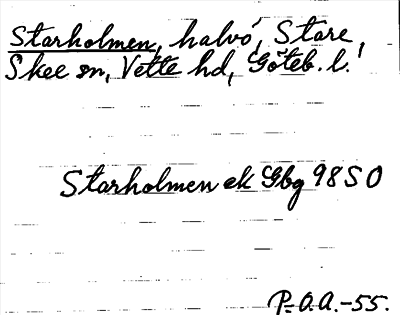 Starholmen, halvö, Stare,
Skee sn, Vette hd, Göteb. l.
Starholmen ek Gbg 98 SO
P.O.A.-55.